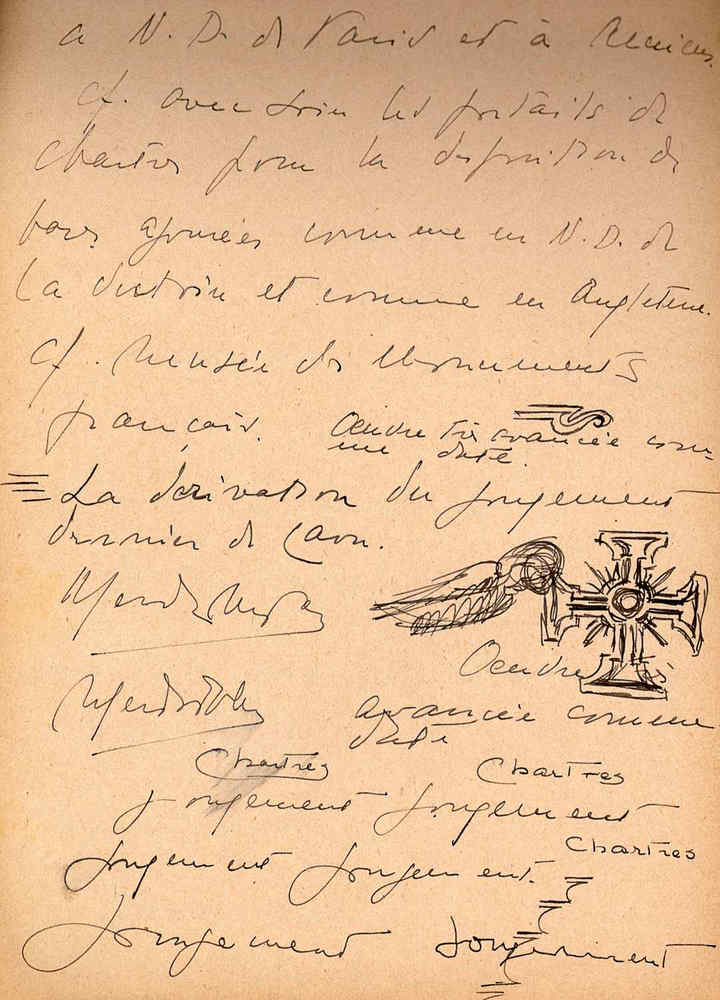 a N. D. de Paris et à Reims.
cf. avec soin les portails de
Chartres pour la disposition de
bases ajourées comme en N. D. de
la et comme en Angleterre.
cf. Musée des Monuments
français.
Oeuvre très avancée com-
me date.
La dérivation du jugement
dernier de Laon.
Oeuvre
avancée comme
date
Chartres
Chartres
jugement jugement
Chartres
jugement jugement.
jugement jugement